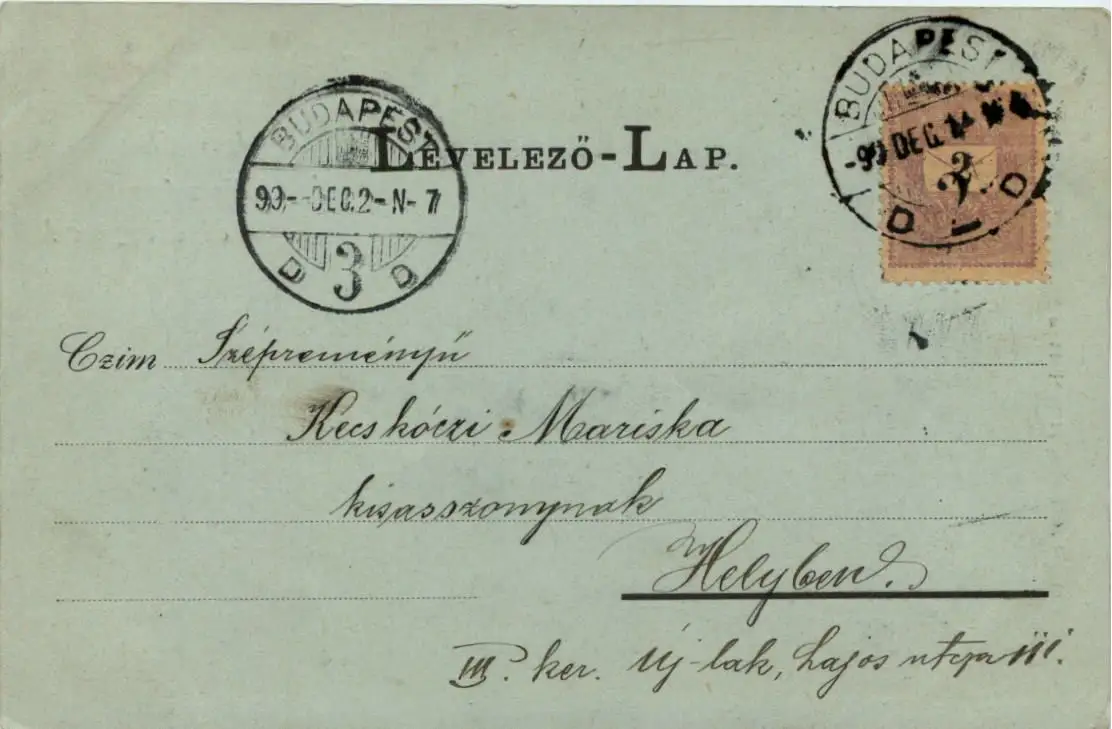 BUDAPEST
-99 DEC.
2
D D
BUDAPEST
99.- DEC.2-N-7
D 3 D
LEVELEZŐ-LAP.
Czim Szépreményű
Kecskóczi Mariska
kisasszonynak
Helyben.
III. ker. Új-lak, Lajos utcza 111.